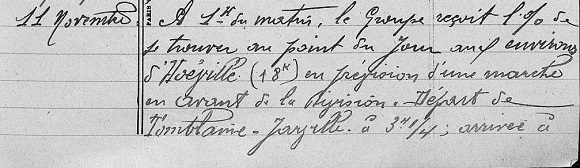 11 Novembre. A 1H du matin, le Groupe reçoit l'O/ de
se trouver au point du Jour aux environs
d'Hoéville (18K) en prévision d'une marche
en avant de la Division. Départ de
Tomblaine - Jarville à 3H1/4; arrivée à